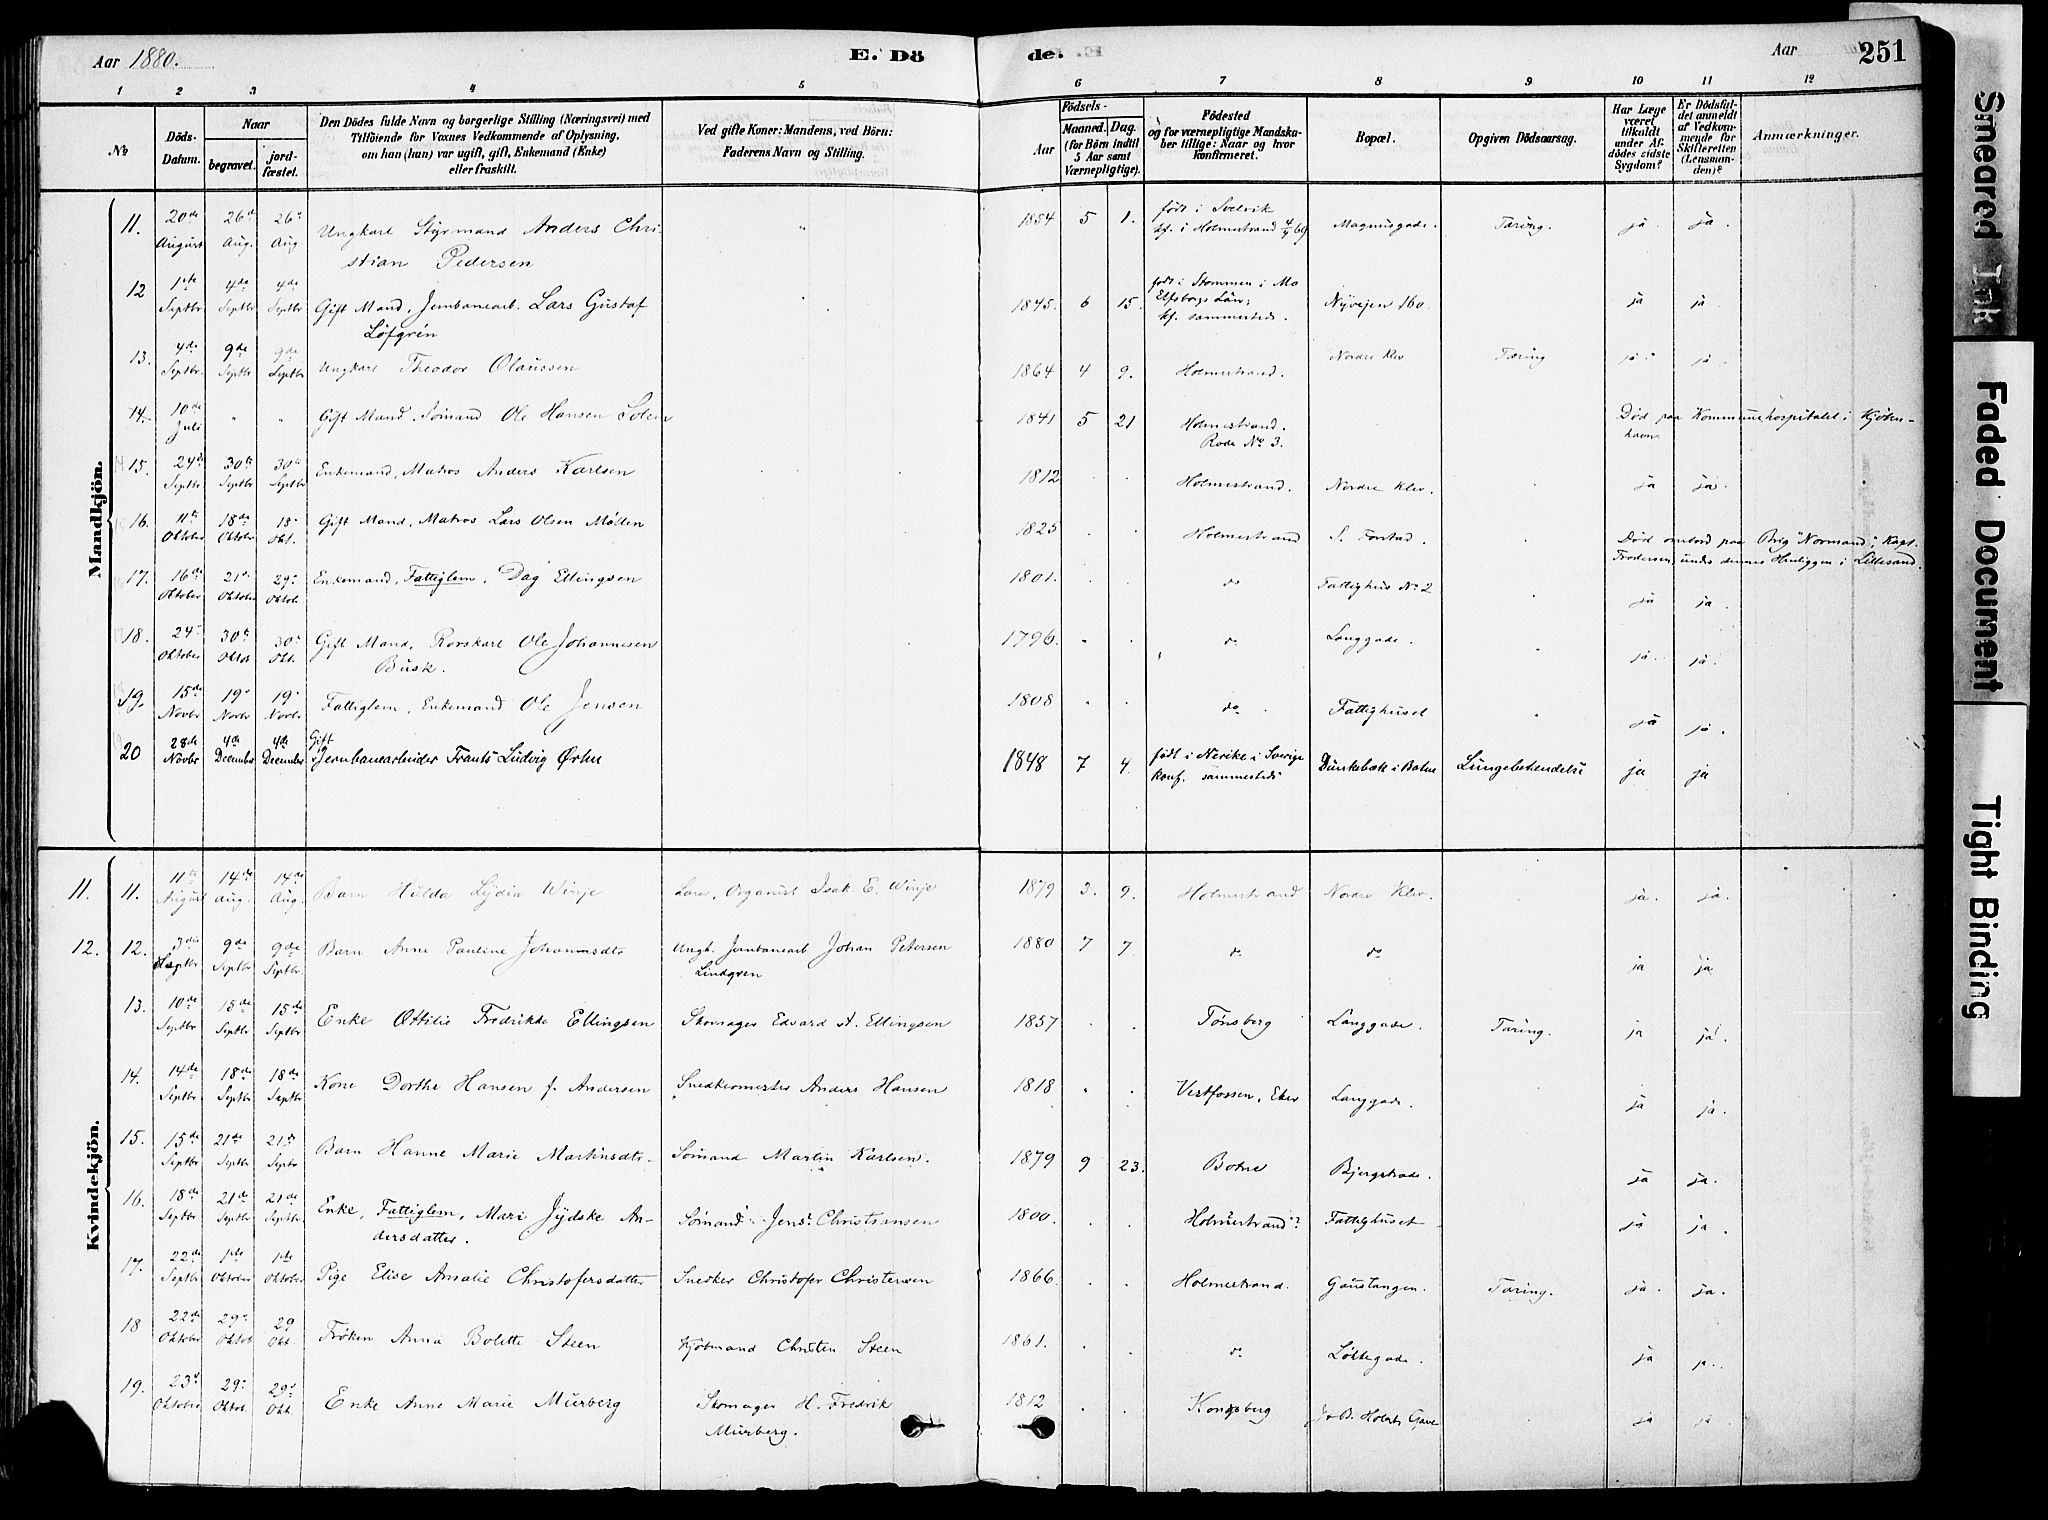 Aar 1880.
E. Dö
de.
Aar
251
1 2 3 4 5 6 7 8 9 10 11 12
№
Döds-
Datum.
Naar
begravet.
jord-
fæstet.
Den Dödes fulde Navn og borgerlige Stilling (Næringsvei) med
Tilföiende for Voxnes Vedkommende af Oplysning,
om han (hun) var ugift, gift, Enkemand (Enke)
eller fraskilt.
Ved gifte Koner: Mandens, ved Börn:
Faderens Navn og Stilling.
Födsels-
Aar
Maaned. Dag.
(for Börn indtil
5 Aar samt
Værnepligtige).
Födested
og for værnepligtige Mandska-
ber tillige: Naar og hvor
konfirmeret.
Bopæl.
Opgiven Dödsaarsag.
Har Læge
været
tilkaldt
under Af-
dödes sidste
Sygdom?
Er Dödsfal-
det anmeldt
af Vedkom-
mende for
Skifteretten
(Lensman-
den)?
Anmærkninger.
Mandkjön.
11. 20de August 26de Aug. 26de Aug Ungkarl Styrmand Anders Chri-
stian Pedersen " 1854 5 1. født i Svelvik
kf. i Holmestrand 4/4 69 Magnusgade. Tæring. ja. ja.
12 1ste Septbr 4de Septbr 4de Septbr Gift Mand, Jernbanearb. Lars Gustaf
Löfgrén 1845. 6 15. født i Stommen i Mo
Elfsborgs Län,
kf. sammesteds. Nyvejen 160. ja ja
13. 4de Septbr. 9de Septbr 9de Septbr Ungkarl Theodor Olaussen 1864 4 9. Holmestrand. Nordre Klev Tæring ja. ja
14. 10de Juli " " Gift Mand. Sømand Ole Hansen Solem 1841 5 21 Holmestrand.
Rode No 3. Død paa Kommunehospitalet i Kjöben-
havn.
15. 24de Septbr 30te Septbr 30te Septbr Enkemand, Matros Anders Karlsen 1812 Holmestrand. Nordre Klev. ja ja.
16. 11te Oktober 18de Oktober 18 Okt. Gift Mand, Matros Lars Olsen Möllen 1825 Holmestrand S. Forstad. Död ombord paa Brig "Normand", Kapt.
17. 16de Oktober 21de Oktober 29de Oktob. Enkemand, Fattiglem, Dag Ellingsen 1801. do Fattighus No 2 ja ja.
18. 24de Oktober 30te Oktob 30te Okt. Gift Mand, Rorskarl Ole Johannesen
Busk. 1796. do Langgade. ja. ja.
19. 15de Novbr 19de Novbr 19de Novbr Fattiglem, Enkemand Ole Jensen 1808 do. Fattighuset ja ja.
20 28de Novbr 4de December 4de December Gift
Jernbanearbeider Frants Ludvig Ørhn 1848 7 4. født i Nerike i Sverige
konf. sammesteds Dunkebæk i Botne Lungebetændelse ja ja
Kvindekjön.
11. 11. 11te August 14de Aug. 14de Aug. Barn Hulda Lydia Winje Lærer, Organist Isak E. Winje 1879 3. 9. Holmestrand Nordre Klev. ja. ja.
12. 12. 3die Septbr 9de Septbr 9de Septbr. Barn Anne Pauline Johannsdtr Ungk. Jernbanearb Johan Petersen
Lindgren 1880 7 7. do do ja ja.
13. 10de Septbr 15de Septbr 15de Septbr Enke Ottilie Fredrikke Ellingsen Skomager Edvard A. Ellingsen 1857 Tønsberg Langgade. Tæring. ja ja.
14. 14de Septbr 18de Septbr 18de Septbr Kone Dorthe Hansen f. Andersen Snedkermester Anders Hansen 1818 Vestfossen, Eker Langgade. ja ja.
15. 15de Septbr 21de Septbr 21de Septbr Barn Hanne Marie Martinsdtr. Sömand Martin Karlsen. 1879 9 23. Botne Bjergstrade. ja ja.
16. 18de Septbr 21de Septbr 21de Septbr. Enke, Fattiglem, Mari Jydske An-
dersdatter. Sömand Jens Christiansen 1800. Holmestrand? Fattighuset ja ja.
17. 22de Septbr 1ste Oktober 1ste Oktober Pige Elise Amalie Christofersdatter Snedker Christofer Christensen 1866 Holmestrand. Gaustangen. Tæring. ja. ja.
18 22de Oktober 29de Oktob. 29 Okt. Fröken Anna Bolette Steen Kjöbmand Christen Steen 1861. do Løkkegade. ja ja.
19. 23de Oktober 29de Oktob. 29de Okt. Enke Anne Marie Murberg Skomager H. Fredrik
Murberg. 1812 Kongsberg ja ja
Smeared Ink
Faded Document
Tight Binding